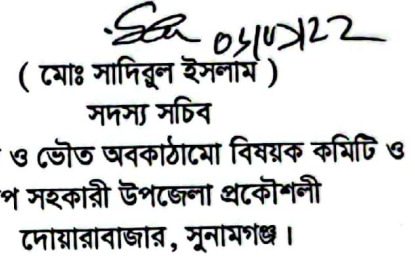 ( মোঃ সাদিরুল ইসলাম )
সদস্য সচিব
ও ভৌত অবকাঠামো বিষয়ক কমিটি ও
প সহকারী উপজেলা প্রকৌশলী
দোয়ারাবাজার, সুনামগঞ্জ।